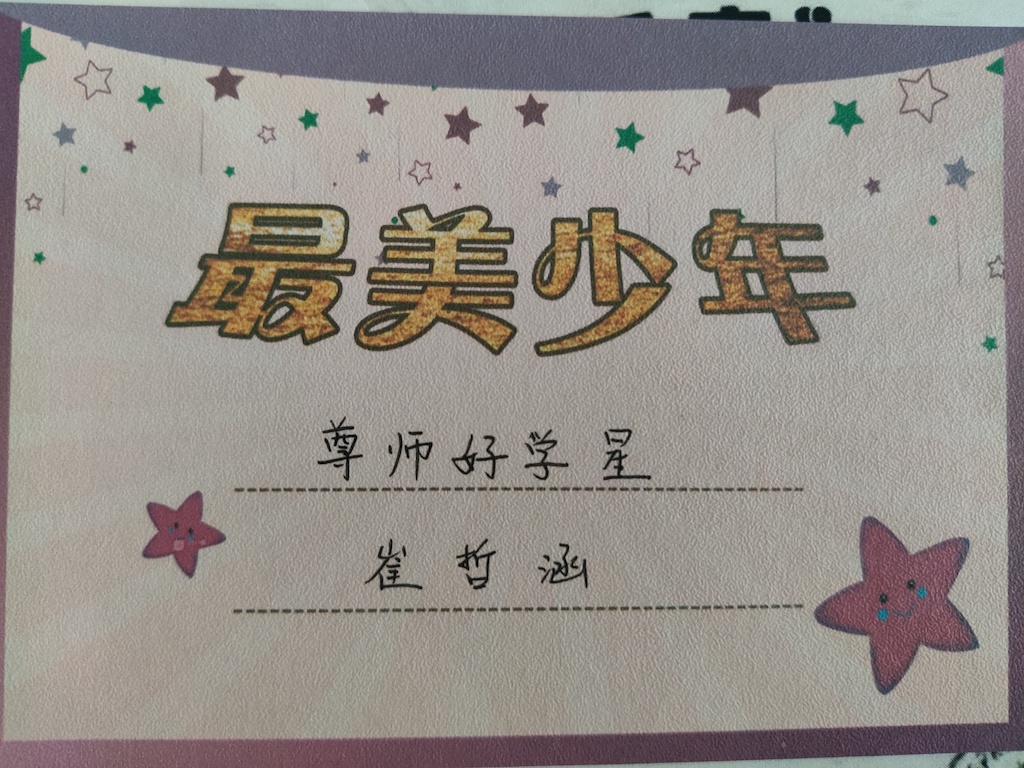 最美少年
尊师好学星
崔哲涵